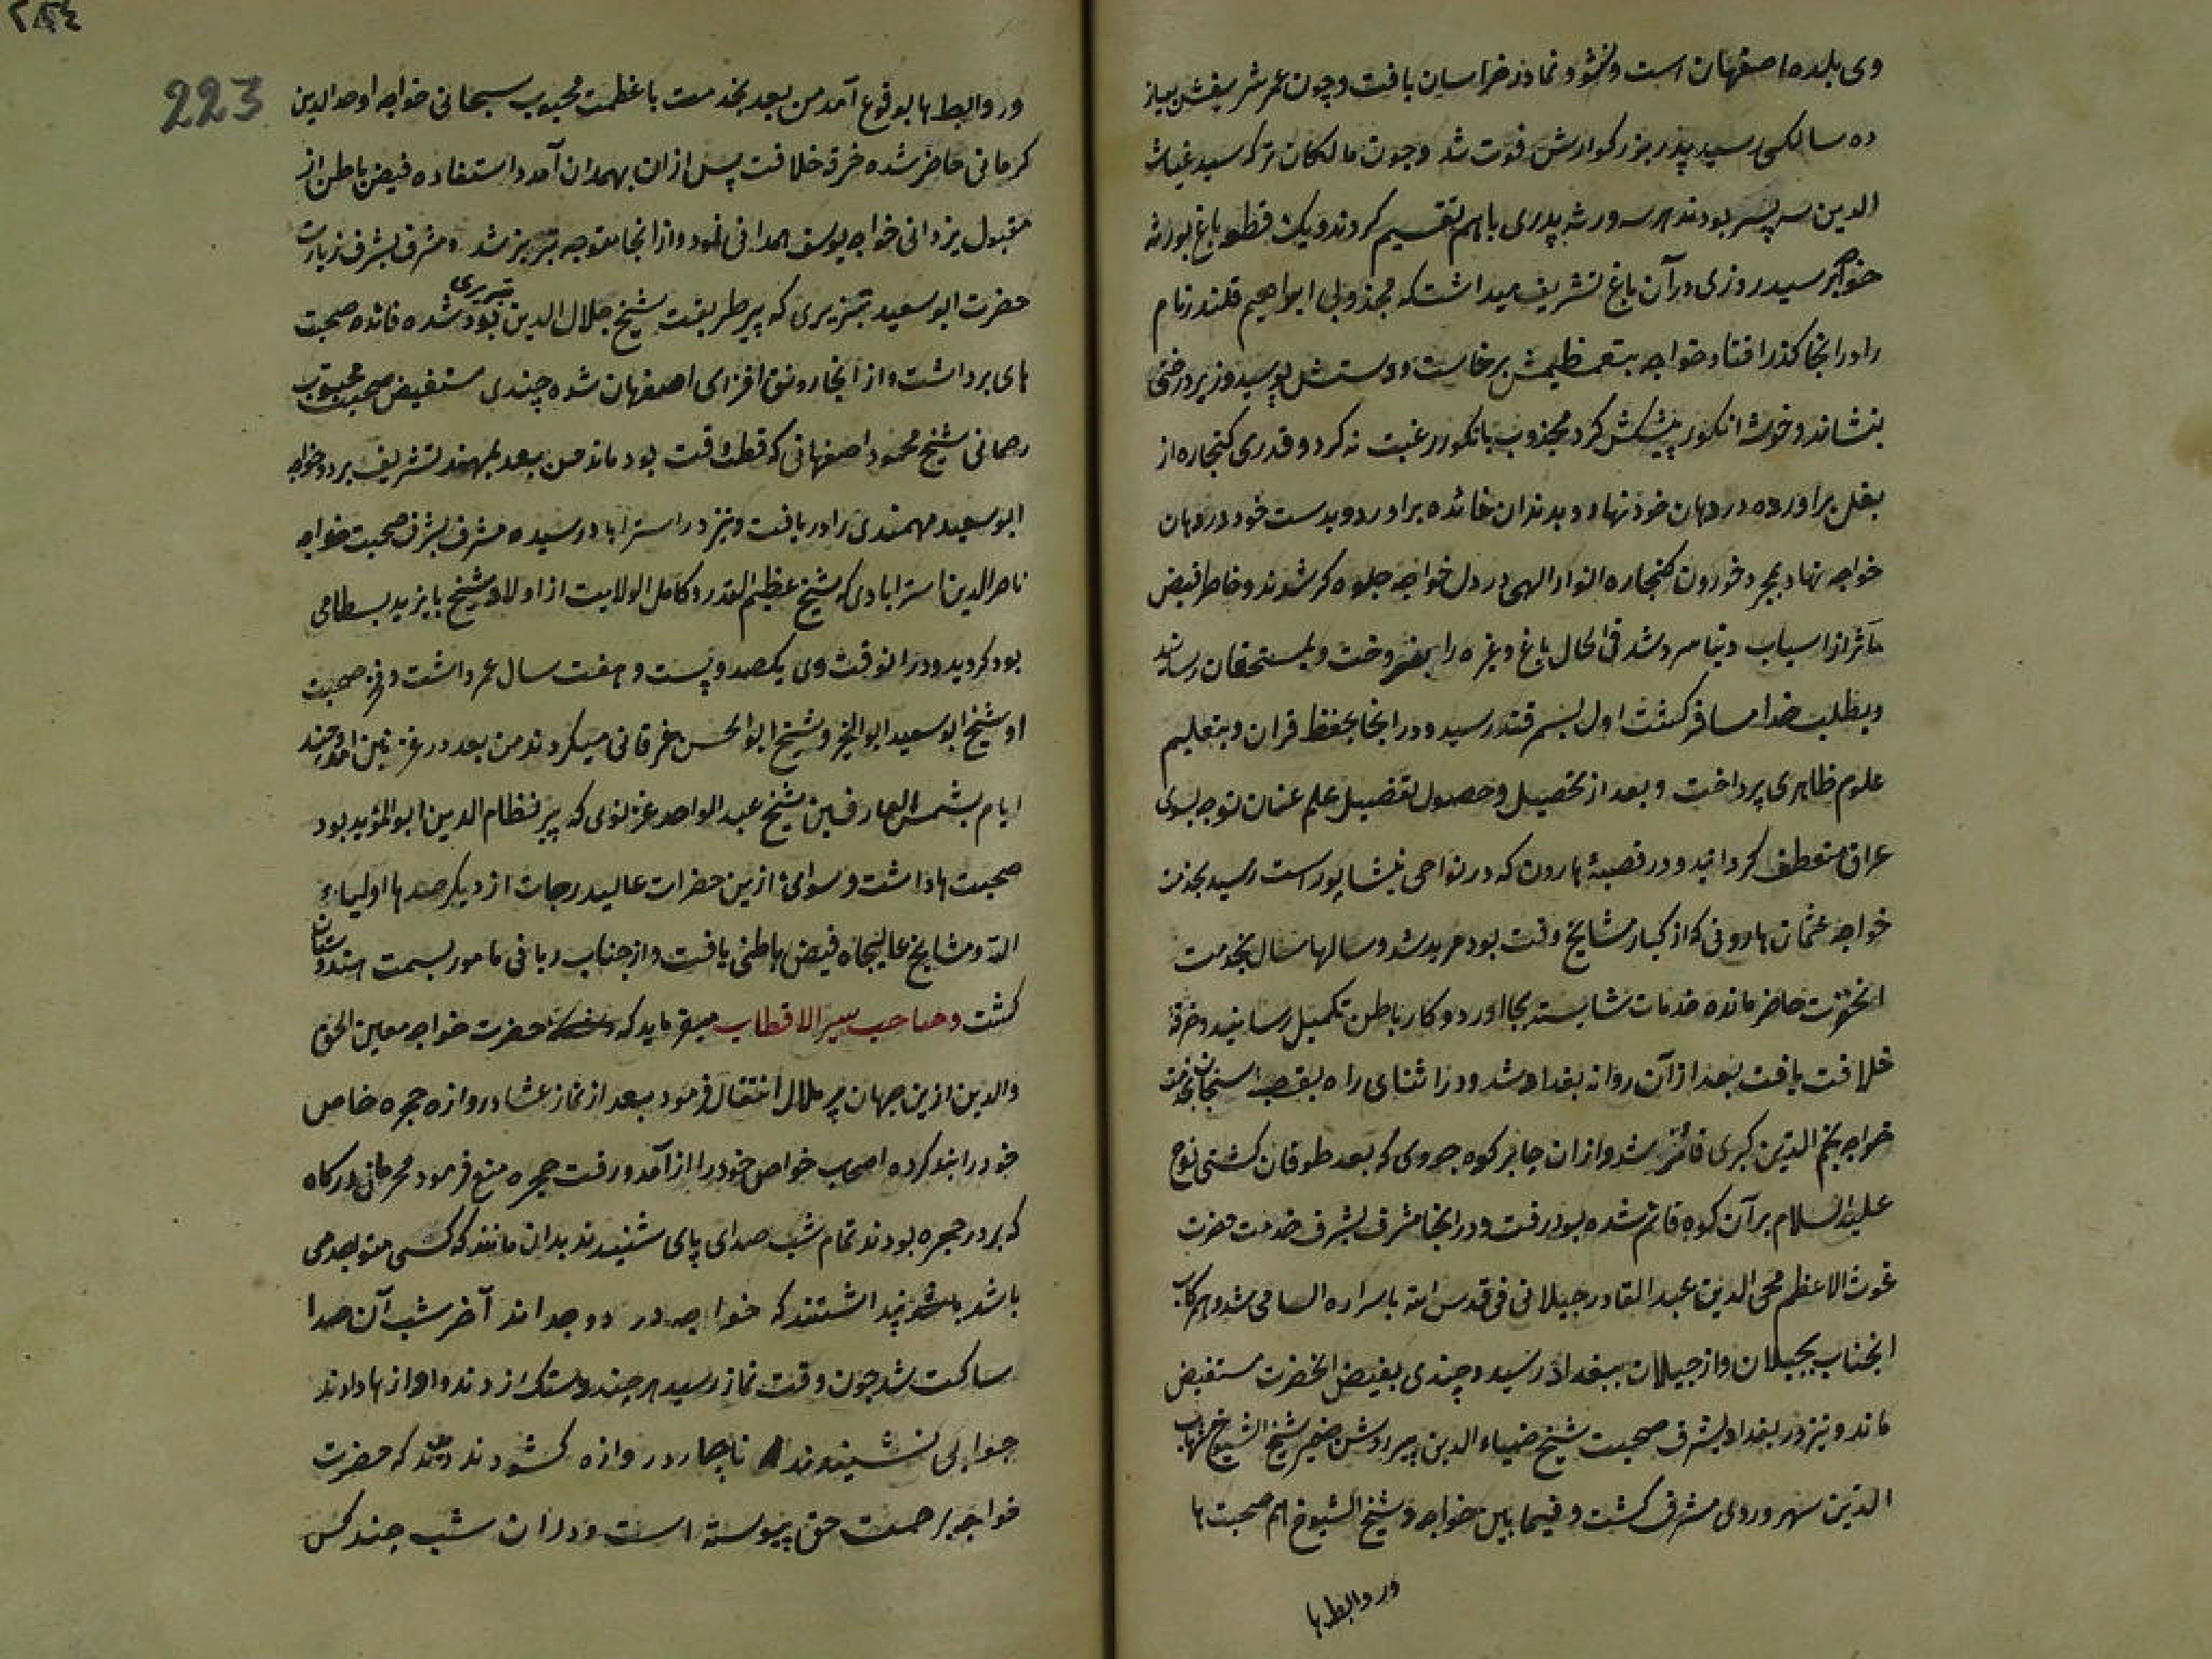 وی بلده اصفهان است و نشو و نما در خراسان یافت و چون عمر شریفش بپانز
ده سالگی رسید پدر بزرگوارش فوت شد و چون مالکان ترکه سید غیاث
الدین سه پسر بودند هر سه ورثه پدری باهم تقسیم کردند و یک قطعه باغ بورثه
خواجه رسید روزی در آن باغ تشریف میداشت که مجذوبی ابراهیم قلندر نام
را در انجا گذر افتاد خواجه بتعظیمش برخاست و دستش بوسید و زیر درختی
بنشاند و خوشه انکور پیشکش کرد مجذوب بانکور رغبت نه کرد و قدری کنجاره از
بغل براورده در دهان خود نهاد و بدندان خائده براورد و بدست خود در دهان
خواجه نهاد بمجرد خوردن کنجاره انوار الهی در دل خواجه جلوه گر شدند و خاطر فیض
مآثر از اسباب دنیا سرد شد فی الحال باغ و غیره را بفروخت و بمستحقان رساند
و بطلب خدا مسافر کشت اول بسمرقند رسید و در انجا بحفظ قران و بتعلیم
علوم ظاهری پرداخت و بعد از تحصیل و حصول تفضیل علم عنان توجه بسوی
عراق منعطف کردانید و در قصبهٔ هارون که در نواحی نیشاپور است رسید بخدمت
خواجه عثمان هارونی که از کبار مشایخ وقت بود مرید شد و سالها سال بخدمت
انحضرت حاضر مانده خدمات شایسته بجا اورد و کار باطن تکمیل رسانید و خرقهٔ
خلافت یافت بعد ازان روانه بغداد شد و در اثنای راه بقصبه سنجان بخدمت
خواجه نجم الدین کبری فائز شد و ازان جا بر کوه جودی که بعد طوفان کشتی نوح
علیه السلام بر آن کوه قائم شده بود رفت و در انجا مشرف بشرف خدمت حضرت
غوث الاعظم محی الدین عبد القادر جیلانی فی قدس الله باسراره السامی شد و همرکاب
انجناب بجیلان و از جیلان ببغداد رسید و چندی بفیض انحضرت مستفیض
ماند و نیز در بغداد بشرف صحبت شیخ ضیاء الدین پیر روشن ضمیر شیخ الشیوخ شهاب
الدین سهروردی مشرف کشت و فیما بین خواجه و شیخ الشیوخ هم صحبت ها
ور وابط ها
٢٨٤
223
ور وابط ها بوقوع آمد من بعد بخدمت باعظمت محبوب سبحانی خواجه اوحد الدین
کرمانی حاضر شده خرقه خلافت پس ازان بهمدان آمد و استفاده فیض باطن از
مقبول یزدانی خواجه یوسف همدانی نمود و از انجا متوجه تبریز شد و مشرف بشرف زیارت
حضرت ابو سعید تبریزی که پیر طریقت شیخ جلال الدین تبریزی بود شده فائده صحبت
های برداشت و از انجا رونق افزای اصفهان شده چندی مستفیض صحبت محبوب
رحمانی شیخ محمود اصفهانی که قطب وقت بود ماند من بعد بمهند تشریف برد و خواجه
ابو سعید مهمندی را دریافت و نیز در استراباد رسیده مشرف بشرف صحبت خواجه
ناصر الدین استرابادی که شیخ عظیم القدر و کامل الولایت از اولاد شیخ بایزید بسطامی
بود کردید و در انوقت وی یکصد و بست و هفت سال عمر داشت و فخر صحبت
او شیخ ابو سعید ابو الخیر و شیخ ابو الحسن خرقانی میکردند من بعد در غزنین امد و چند
ایام بشمس العارفین شیخ عبد الواحد غزنوی که پیر نظام الدین ابو المؤید بود
صحبت ها داشت و سوای ازین حضرات عالیدرجات از دیگر صدها اولیاء
الله و مشایخ عالیجاه فیض باطنی یافت و از جناب ربانی مامور بسمت هندوستان
کشت و صاحب سیر الاقطاب میفرماید که حضرت خواجه معین الحق
والدین ازین جهان پر ملال انتقال فرمود بعد از نماز عشا دروازه حجره خاص
خود را بند کرده اصحاب خواص خود را از آمد و رفت حجره منع فرمود محرمانی درکاه
که بر در حجره بودند تمام شب صدای پای شنیدند بدان مانند که کسی متوجد می
باشد پنداشتند که خواجه در وجد اند آخر شب آن صدا
ساکت شد چون وقت نماز رسید هر چند دستک زدند و اوازها دادند
جوابی نشنیدند ناچار دروازه کشودند دیدند که حضرت
خواجه برحمت حق پیوسته است و دران شب چند کس